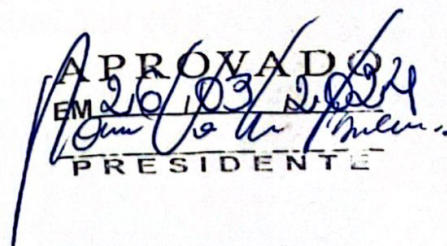 APROVADO
EM 26/03/2024
PRESIDENTE